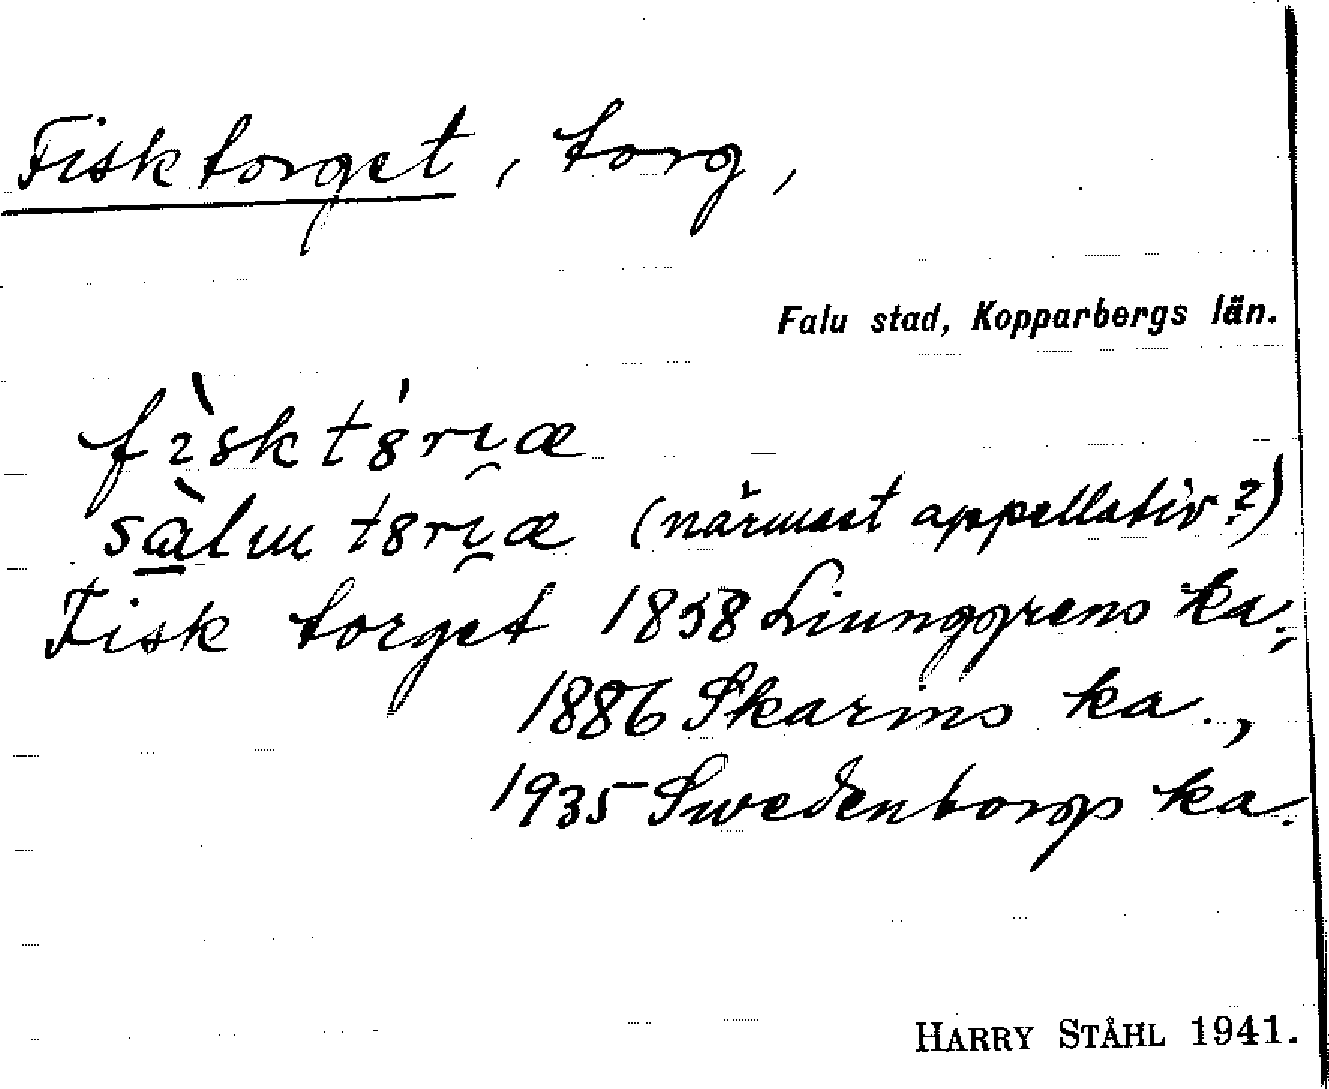 Fisktorget, torg,
Falu stad, Kopparbergs län.
fìskt8́rıæ
sàlmt8rıæ (närmast appellativ?)
Fisk torget 1858 Ljunggrens ka.;
1886 Skarins ka.,
1935 Swedenborgs ka.
HARRY STÅHL 1941.